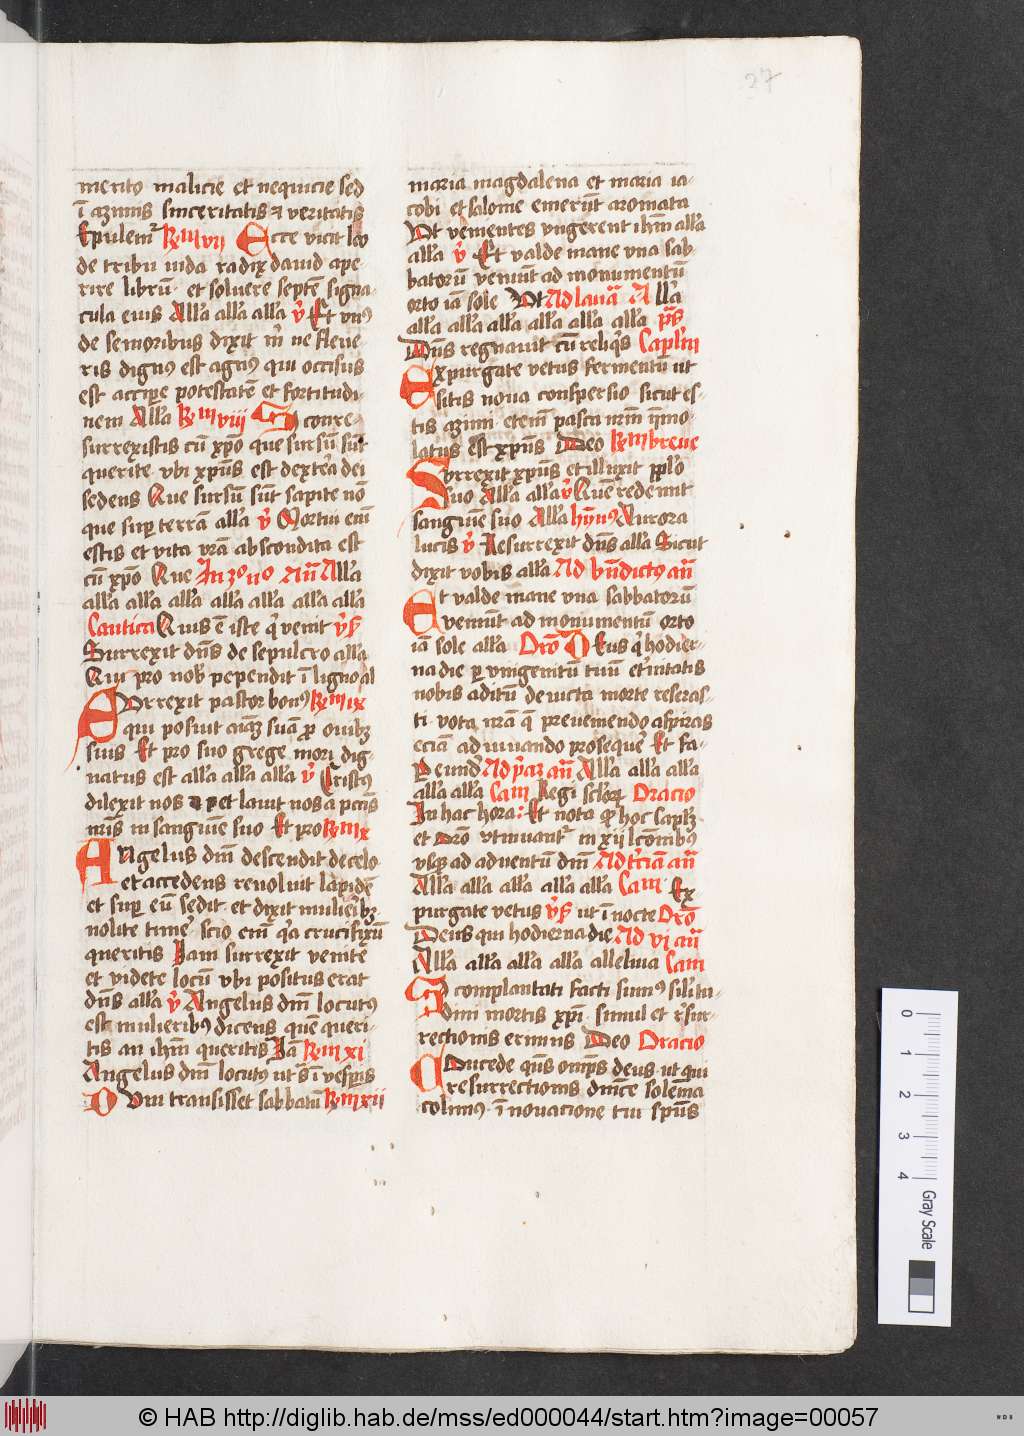 37
merito malicie et nequicie sed
ī azimis sinceritatis ⁊ veritatis
Epulem̄ R̄m vii Ecce vicit leo
de tribu iuda radix dauid ape-
rire librū et soluere septē signa-
cula eius All'a all'a all'a v̄ Et vnꝰ
de senioribus dixit m̄ ne fleue-
ris dignꝰ est agnꝰ qui occisus
est accipe potestatē et fortitudi-
nem All'a R̄m viii Si conre-
surrexistis cū xp̄o que sursū sūt
querite vbi xp̄us est dext'a dei
sedens Que sursū sūt sapite nō
que sup terrā all'a v̄ Mortui em̄
estis et vita vrā abscondita est
cū xp̄o Que In 2º nº An̄ All'a
all'a all'a all'a all'a all'a all'a all'a
Cantica Quis ē iste q' venit v̄s
Surrexit dn̄s de sepulcro all'a
Qui pro nob' pependit ī ligno al
Surrexit pastor bonꝰ R̄m ix
qui posuit aīaꝫ suā p ouibꝫ
suis Et pro suo grege mori dig-
natus est all'a all'a all'a v̄ Cristꝰ
dilexit nos et lauit nos a pctīs
nrīs in sanguīe suo Et pro R̄m x
Angelus dnī descendit de celo
et accedens reuoluit lapidē
et sup eū sedit et dixit mulieribꝫ
nolite time' scio em̄ q'a crucifixū
queritis Iam surrexit venite
et videte locū vbi positus erat
dn̄s all'a v̄ Angelus dnī locutꝰ
est mulieribꝰ dicens quē queri-
tis an ihm̄ queritis Iā R̄m xi
Angelus dnī locutꝰ ut s' ī vesp̄is
Dvm transisset sabbatū R̄m xii
maria magdalena et maria ia-
cobi et salome emerūt aromata
Vt venientes vngerent ihm̄ all'a
all'a v̄ Et valde mane vna sab-
batorū veniūt ad monumentū
orto iā sole Vt Ad laud' A ll'a
all'a all'a all'a all'a all'a all'a p̄s
Dn̄s regnauit cū reliq's Capl'm
Expurgate vetus fermentū ut
sitis noua conspersio sicut es-
tis azimi etem̄ pasca nrm̄ īmo-
latus est xp̄us Deo R̄m breue
Surrexit xp̄us et illuxit pplo
suo all'a all'a v̄ Quē redemit
sanguīe suo All'a hymꝰ Aurora
lucis v̄ Resurrexit dn̄s all'a Sicut
dixit vobis all'a Ad bn̄dictꝰ an̄
Et valde mane vna sabbatorū
veniūt ad monumentū orto
iā sole all'a Orō Deus q' hodier-
na die p vnigenitū tuū et'nitatis
nobis aditū deuicta morte reseras-
ti vota nrā q̄ preueniendo aspiras
eciam adiuuando proseque' Et fa-
Per eund' Ad p'aꝫ an̄ All'a all'a all'a
all'a all'a Cam Regi sclo℞ Oracio
In hac hora: Et nota q' hoc caplꝫ
et orō vtinuant' in xii lcōnibꝰ
vsqꝫ ad aduentū dnī Ad t'ciam an̄
All'a all'a all'a all'a all'a Cam Ex
purgate vetus v̄s ut ī nocte Orō
Deus qui hodierna die Ad vi an̄
All'a all'a all'a all'a alleluia Cam
Si complantati facti sumꝰ sil'itu-
dini mortis xp̄i simul et r'sur-
rectionis erimus Deo Oracio
Concede q̄s omps̄ deus ut qui
resurrectionis dnīce solem̄ia
colimꝰ ī nouacione tui sp̄us
0
1
2
3
4
Gray Scale
© HAB http://diglib.hab.de/mss/ed000044/start.htm?image=00057